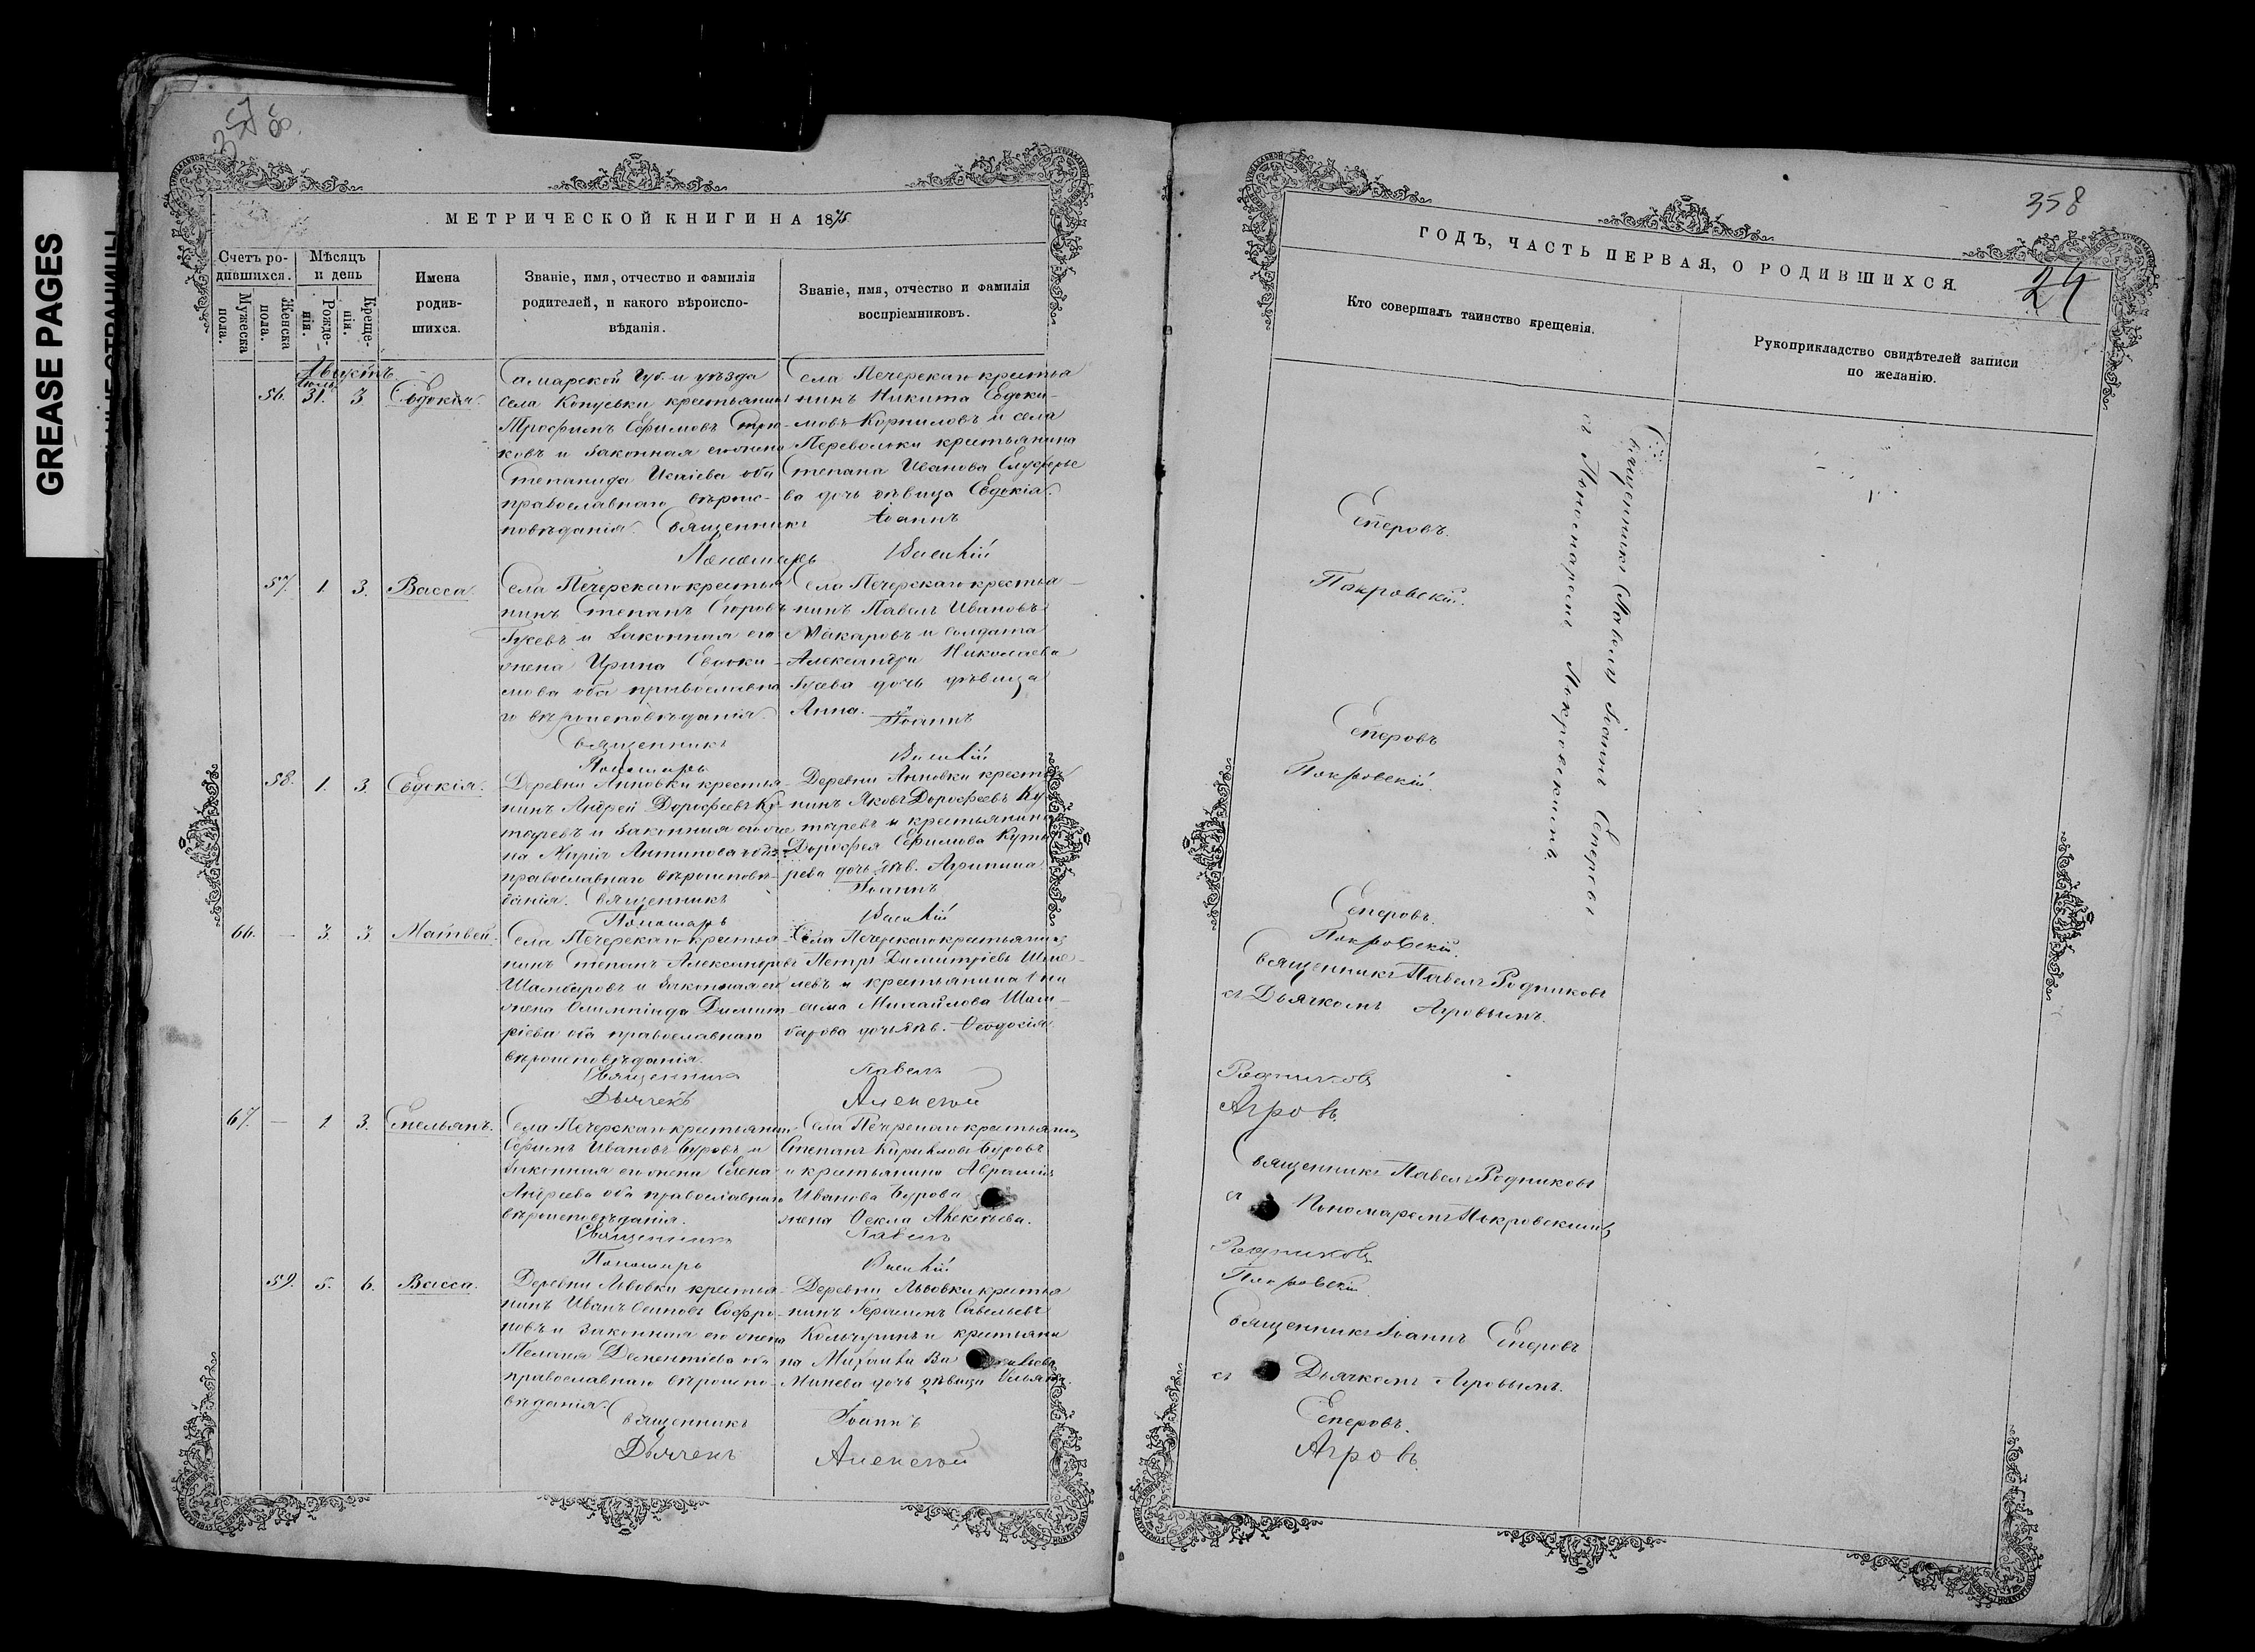 GREASE PAGES
358
МЕТРИЧЕСКОЙ КНИГИ НА 1875
Счетъ ро-
дившихся.
Мѣсяцъ
и день
Мужеска
пола.
Женска
пола.
Рожде-
нія.
Креще-
нія.
Имена
родив-
шихся.
Званіе, имя, отчество и фамилія
родителей, и какого вѣроиспо-
вѣданія.
Званіе, имя, отчество и фамилія
воспріемниковъ.
Августъ
Іюль
56. 31. 3 Евдокія.
Самарской Губ. и уѣзда
села крестьянинъ
Трофимъ Ефимовъ
ковъ и законная его жена
Степанида Исаіева оба
православнаго вѣроис-
повѣданія. Священникъ
Пономарь
Села Печерскаго крестья
нинъ Никита Евдоки-
мовъ Корниловъ и села
Переволоки крестьянина
Степана Иванова Елуферье
ва дочь дѣвица Евдокія.
Іоаннъ
Василій
57. 1. 3. Васса.
Села Печерскаго крестья
нинъ Степанъ Егоровъ
Гусевъ и законная его
жена Ирина Евдоки-
мова оба православна
го вѣроисповѣданія.
Священникъ
Пономарь
Села Печерскаго крестья-
нинъ Павелъ Ивановъ
Макаровъ и солдата
Александра Николаева
Гусева дочь дѣвица
Анна.
Іоаннъ
Василій
58. 1. 3. Евдокія.
Деревни Анновки крестья-
нинъ Андрей Дорофеевъ Ку-
таревъ и законная его же
на Марія Антипова оба
православнаго вѣроисповѣ-
данія. Священникъ
Пономарь
Деревни Анновки крестья
нинъ Яковъ Дорофеевъ Ку-
таревъ и крестьянина
Дорофея Ефимова Кута
рева дочь дѣв. Агрипина
Іоаннъ
Василій
66. — 3. 3. Матвей.
Села Печерскаго крестья-
нинъ Степанъ Александровъ
Шамбаровъ и законная его
жена Олимпіада Димит-
ріева оба православнаго
вѣроисповѣданія.
Священникъ
Дьячекъ
Села Печерскаго крестьянинъ
Петръ Димитріевъ
левъ и крестьянина Ани
сима Михайлова Шам-
барова дочь дѣв. Ѳеодосія
Павелъ
Алексѣй
67. — 1 3. Емельянъ.
Села Печерскаго крестьянинъ
Ефимъ Ивановъ Буровъ и
законная его жена Елена
Андреева оба православнаго
вѣроисповѣданія.
Священникъ
Пономарь
Села Печерскаго крестьянинъ
Степанъ Кириловъ Буровъ
и крестьянина Авраміа
Иванова Бурова
жена Ѳекла Алексѣева.
Павелъ
Василій
59. 5. 6. Васса.
Деревни Львовки крестья-
нинъ Иванъ Осиповъ Софро-
новъ и законная его жена
Пелагія Дементіева оба
православнаго вѣроиспо-
вѣданія.
Священникъ
Дьячекъ
Деревни Львовки крестья
нинъ Герасимъ Савельевъ
Кольчугинъ и крестьяни
на Михаила Васильева
Минева дочь дѣвица Ульяна.
Іоаннъ
Алексѣй
358
24
ГОДЪ, ЧАСТЬ ПЕРВАЯ, О РОДИВШИХСЯ.
Кто совершалъ таинство крещенія.
Рукоприкладство свидѣтелей записи
по желанію.
Сеперовъ.
Покровскій.
Сеперовъ
Покровскій.
Сеперовъ.
Покровскій.
Священникъ Іоаннъ Сеперовъ
съ Пономаремъ Покровскимъ.
Священникъ Павелъ Родниковъ
съ Дьячкомъ Агровымъ.
Родниковъ
Агровъ.
Священникъ Павелъ Родниковъ
съ Пономаремъ Покровскимъ
Родниковъ
Покровскій.
Священникъ Іоаннъ Сеперовъ
съ Дьячкомъ Агровымъ.
Сеперовъ.
Агровъ.